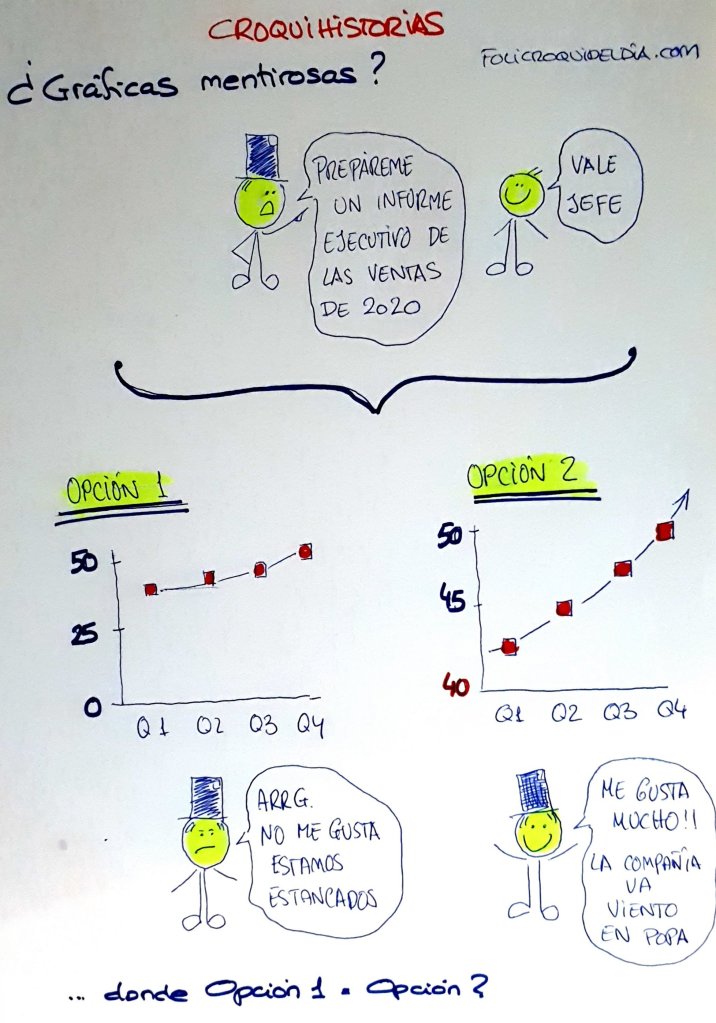 CROQUIHISTORIAS
¿Gráficas mentirosas?
FOLICROQUIDELDÍA.COM
PREPÁREME
UN INFORME
EJECUTIVO DE
LAS VENTAS
DE 2020
VALE
JEFE
OPCIÓN 1
50
25
0
Q1 Q2 Q3 Q4
OPCIÓN 2
50
45
40
Q1 Q2 Q3 Q4
ARRG.
NO ME GUSTA
ESTAMOS
ESTANCADOS
ME GUSTA
MUCHO!!
LA COMPAÑÍA
VA
VIENTO
EN POPA
... donde Opción 1 = Opción 2